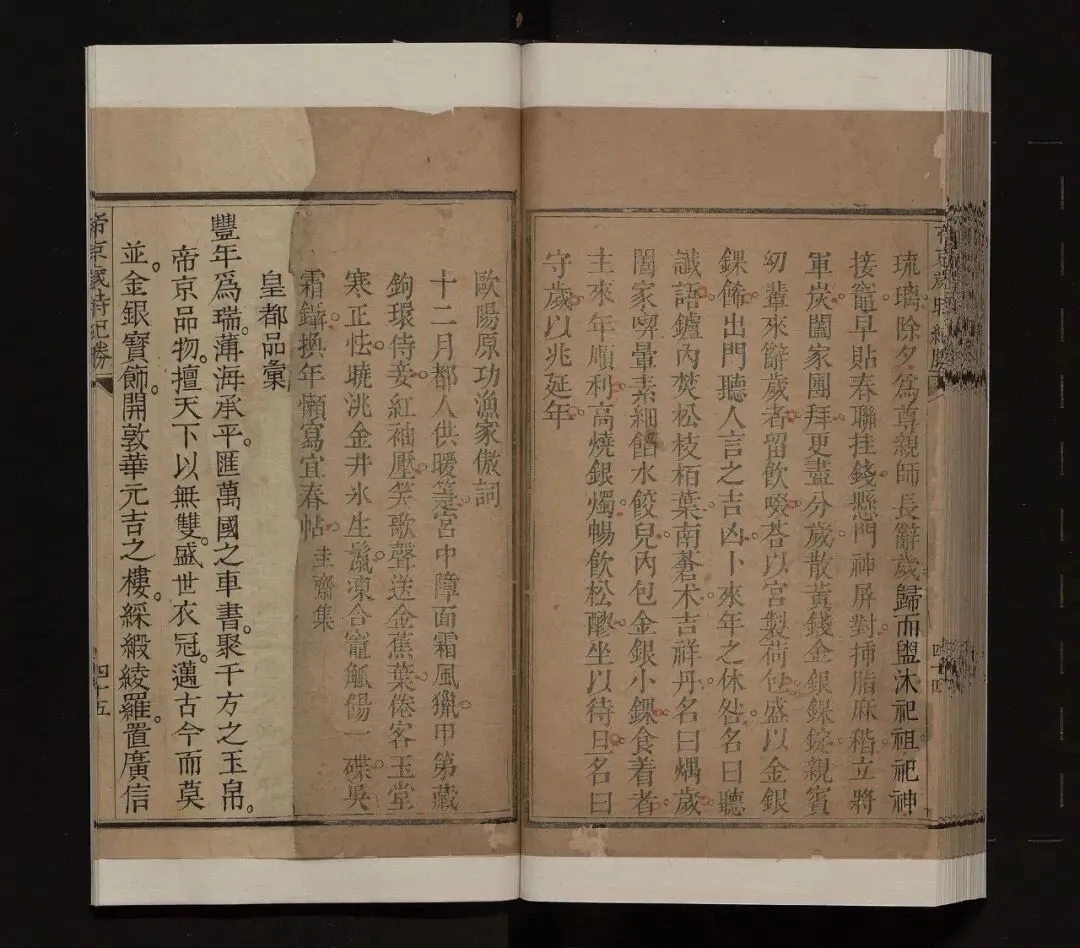 琉璃除夕爲尊親師長辭歲歸而盥沐祀祖祀神
接竈早貼春聯挂錢懸門神屏對插脂麻稭立將
軍炭闔家團拜更盡分歲散黃錢金銀錁錠親賓
幼輩來辭歲者留飲啜荅以宮製荷包盛以金銀
錁飾出門聽人言之吉凶卜來年之休咎名曰聽
讖語鑪內焚松枝栢葉南蒼术吉祥丹名曰煱歲
闔家喫葷素細餡水餃兒內包金銀小錁食着者
主來年順利高燒銀燭暢飲松醪坐以待旦名曰
守歲以兆延年
四十四
歐陽原功漁家傲詞
十二月都人供暖箑宮中障面霜風獵甲第藏
鉤環侍妾紅袖壓笑歌聲送金蕉葉倦客玉堂
寒正怯曉洮金井氷生鬣凍合竈觚餳一碟吳
霜鑷換年懶寫宜春帖 圭齋集
皇都品彙
豐年爲瑞薄海承平匯萬國之車書聚千方之玉帛
帝京品物擅天下以無雙盛世衣冠邁古今而莫
並金銀寶飾開敦華元吉之樓綵緞綾羅置廣信
帝京歲時紀勝
四十五